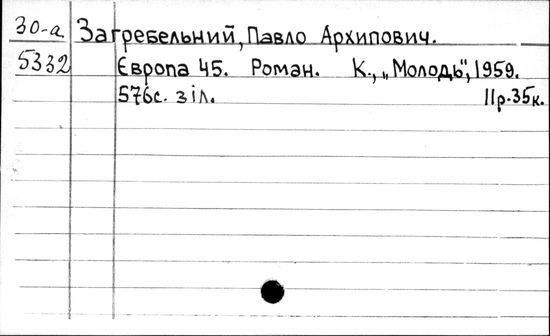 30-а Загребельний, Павло Архипович.
5332 Європа 45. Роман. К., „Молодь", 1959.
576с. з іл. 11р.35к.